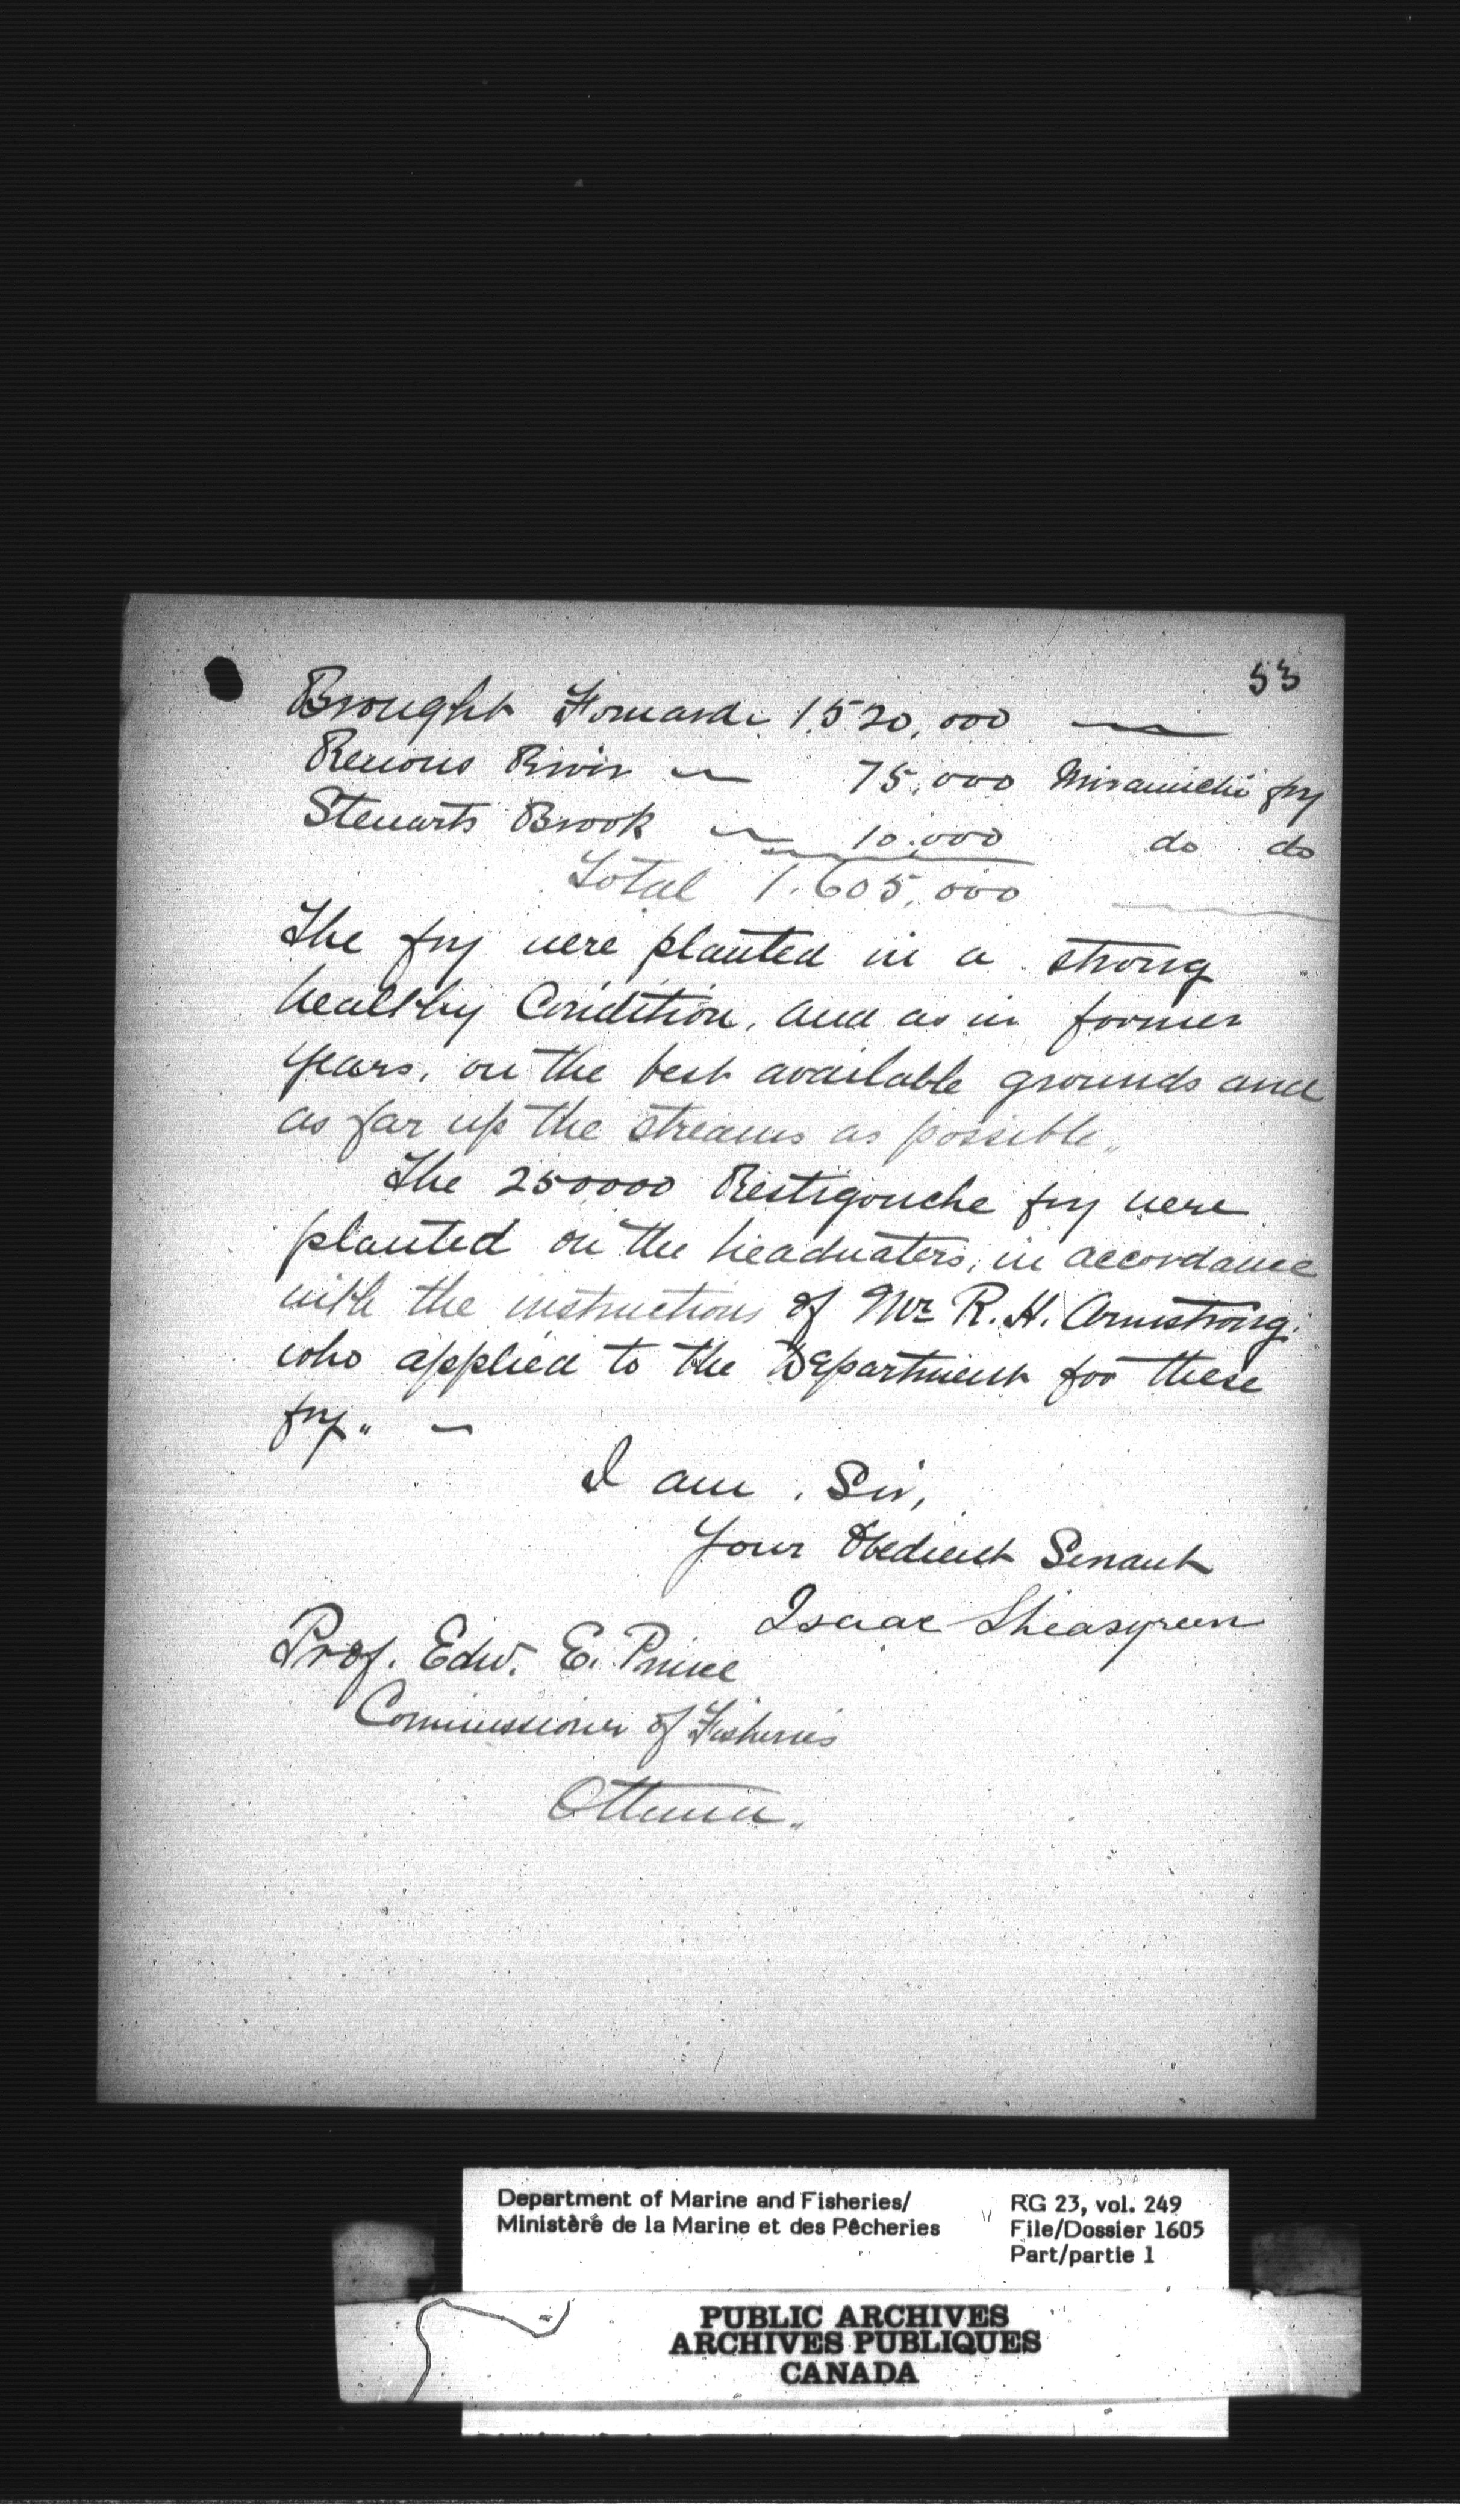 53
Brought Forward 1,520,000
Renous River 75,000 Miramichi fry
Stewarts Brook 10,000 do do
Total 1,605,000
The fry were planted in a strong
healthy Condition, and as in former
years, on the best available grounds and
as far up the streams as possible.
The 250000 Restigouche fry were
planted on the headwaters, in accordance
with the instructions of Mr R. H. Armstrong.
who applied to the Department for these
fry. –
I am, Sir,
Your Obedient Servant
Isaac Sheasgreen
Prof. Edw. E. Prince
Commissioner of Fisheries
Ottawa.
Department of Marine and Fisheries/
Ministère de la Marine et des Pêcheries
RG 23, vol. 249
File/Dossier 1605
Part/partie 1
PUBLIC ARCHIVES
ARCHIVES PUBLIQUES
CANADA